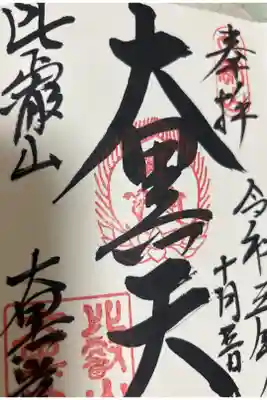 奉拝
令和五年
十月五日
大黒天
比叡山
大黒堂